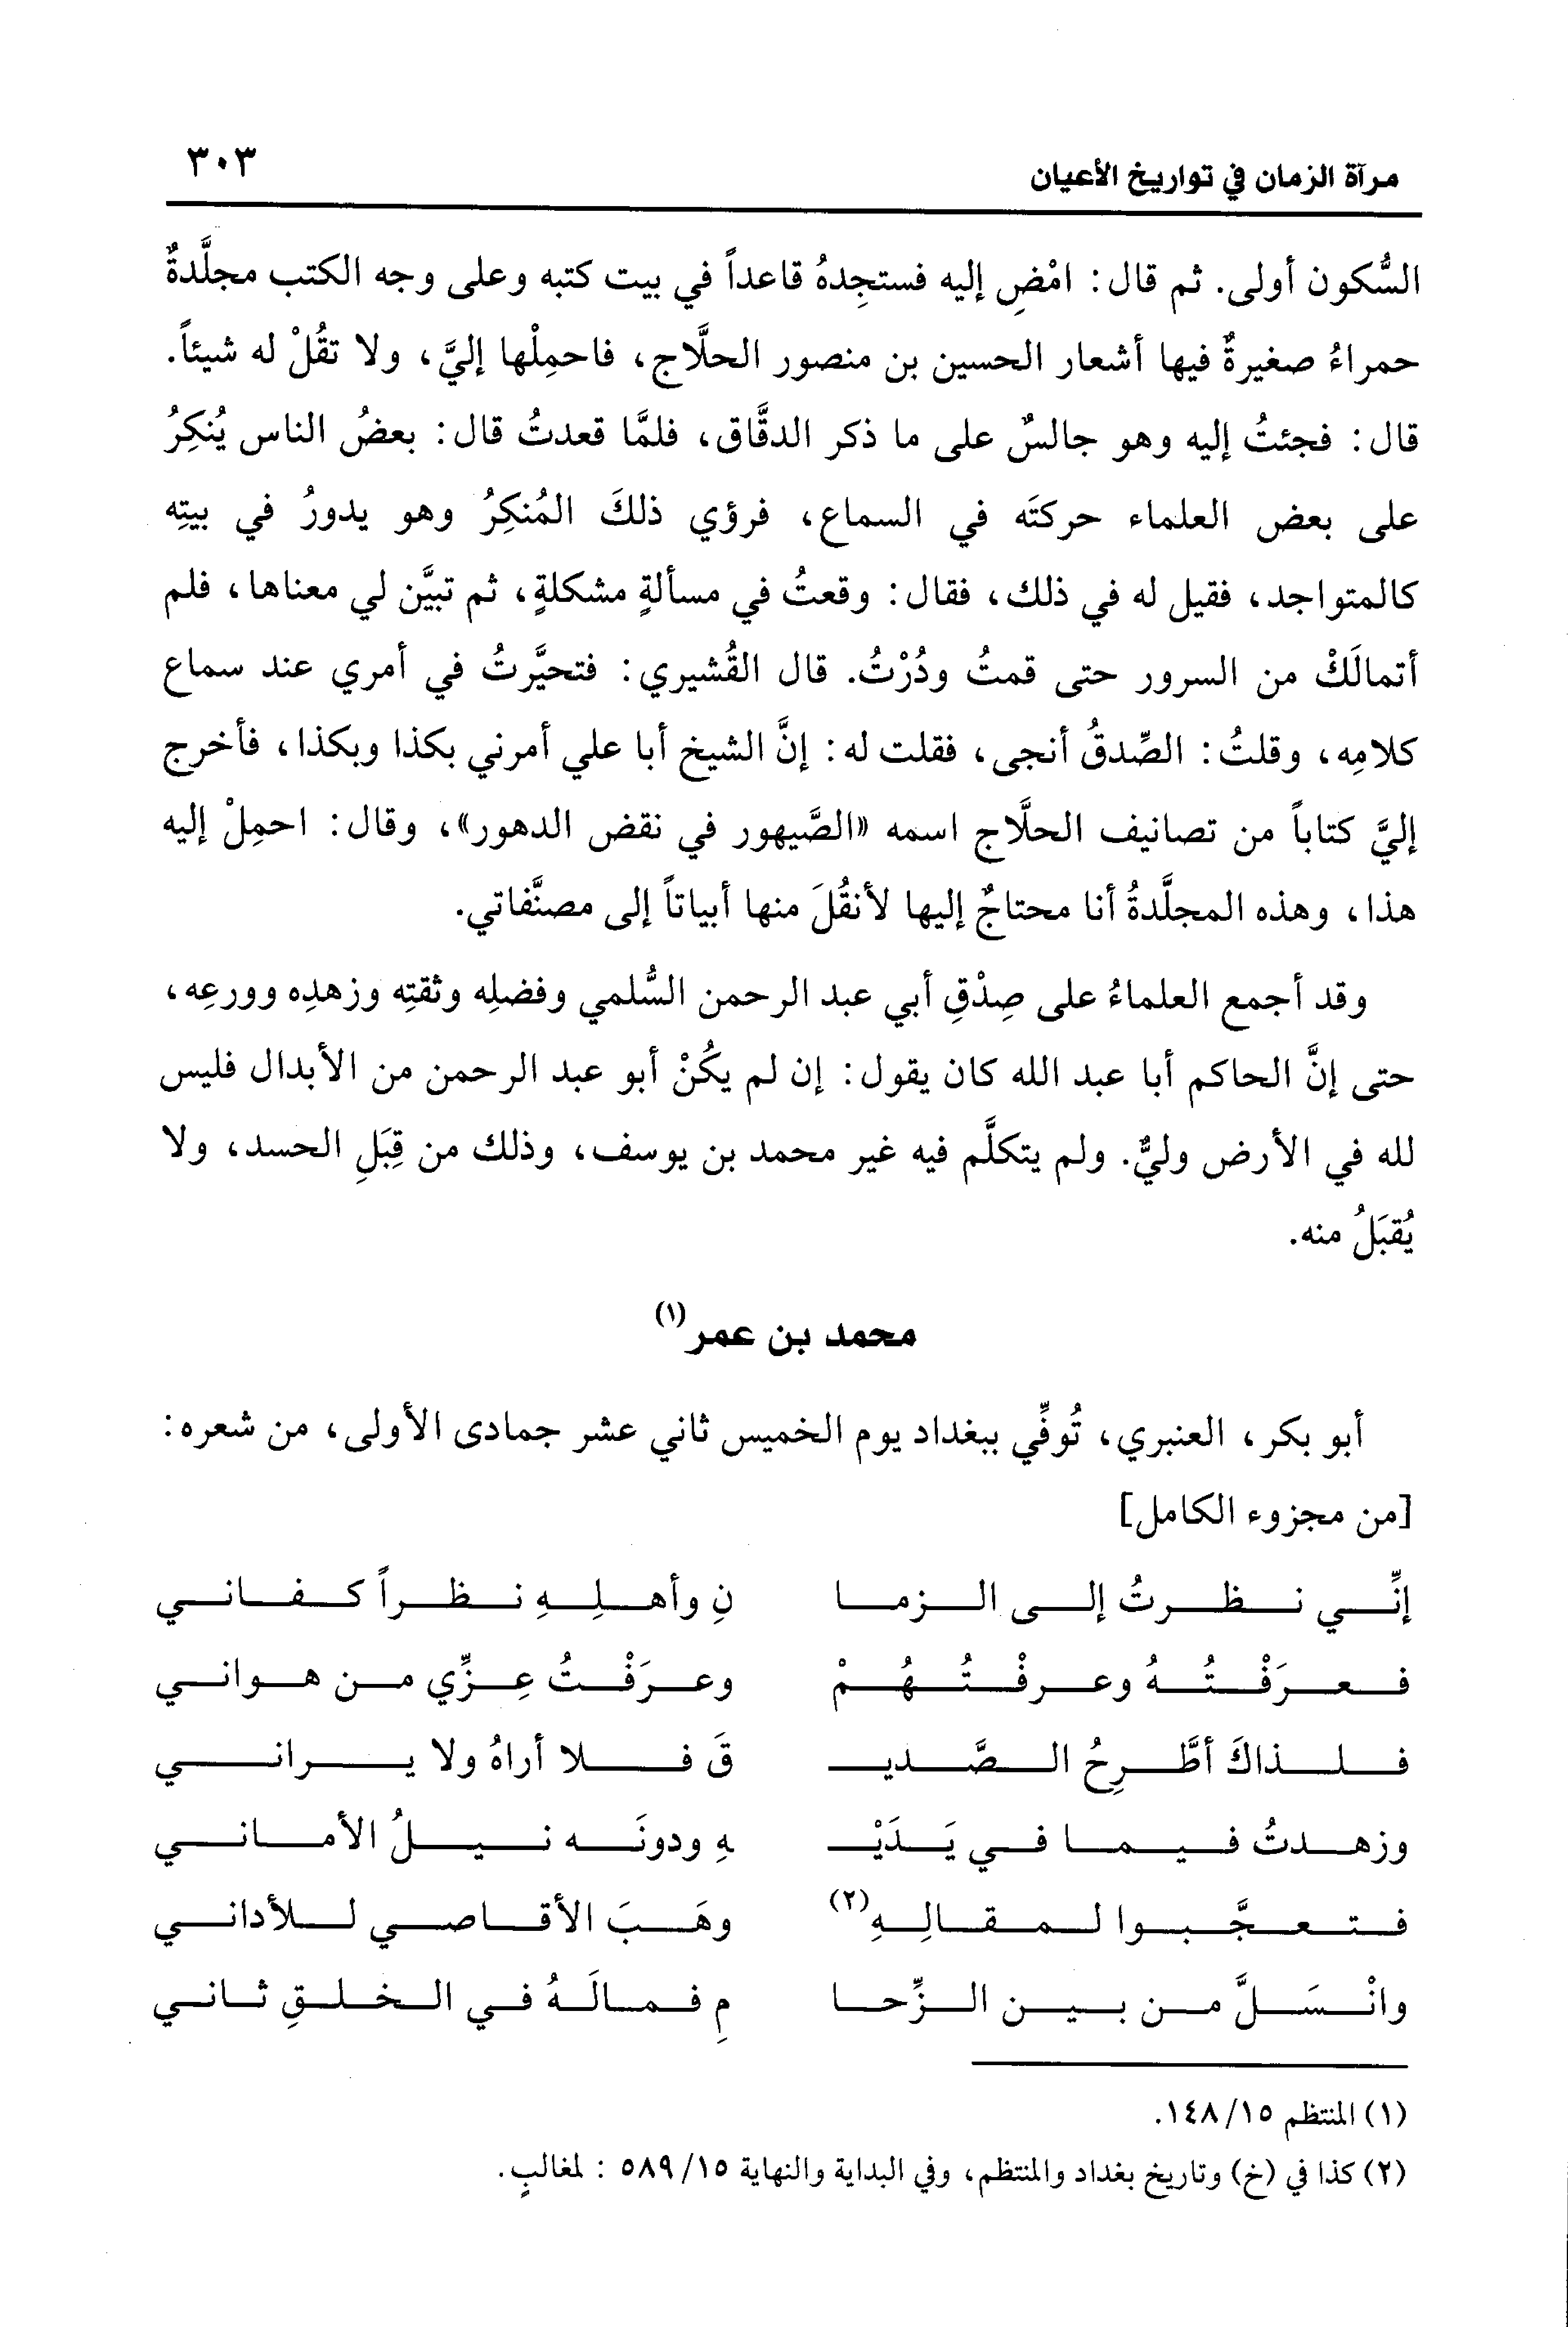 مرآة الزمان في تواريخ الأعيان ٣٠٣
السُّكون أولى. ثم قال: امْضِ إليه فستجِدهُ قاعداً في بيت كتبه وعلى وجه الكتب مجلَّدةٌ
حمراءُ صغيرةٌ فيها أشعار الحسين بن منصور الحلَّاج، فاحمِلْها إليَّ، ولا تقُلْ له شيئاً.
قال: فجئتُ إليه وهو جالسٌ على ما ذكر الدقَّاق، فلمَّا قعدتُ قال: بعضُ الناس يُنكِرُ
على بعض العلماء حركتَه في السماع، فرؤي ذلكَ المُنكِرُ وهو يدورُ في بيتِه
كالمتواجد، فقيل له في ذلك، فقال: وقعتُ في مسألةٍ مشكلةٍ، ثم تبيَّن لي معناها، فلم
أتمالَكْ من السرور حتى قمتُ ودُرْتُ. قال القُشيري: فتحيَّرتُ في أمري عند سماع
كلامِه، وقلتُ: الصِّدقُ أنجى، فقلت له: إنَّ الشيخ أبا علي أمرني بكذا وبكذا، فأخرج
إليَّ كتاباً من تصانيف الحلَّاج اسمه «الصَّيهور في نقض الدهور»، وقال: احمِلْ إليه
هذا، وهذه المجلَّدةُ أنا محتاجٌ إليها لأنقُلَ منها أبياتاً إلى مصنَّفاتي.
وقد أجمع العلماءُ على صِدْقِ أبي عبد الرحمن السُّلمي وفضلِه وثقتِه وزهدِه وورعِه،
حتى إنَّ الحاكم أبا عبد الله كان يقول: إن لم يكُنْ أبو عبد الرحمن من الأبدال فليس
لله في الأرض وليٌّ. ولم يتكلَّم فيه غير محمد بن يوسف، وذلك من قِبَلِ الحسد، ولا
يُقبَلُ منه.
محمد بن عمر(١)
أبو بكر، العنبري، تُوفِّي ببغداد يوم الخميس ثاني عشر جمادى الأولى، من شعره:
[من مجزوء الكامل]
إنِّي نظرتُ إلى الزما نِ وأهلِهِ نظراً كفاني
فعرَفْتُهُ وعرفْتُهُمْ وعرَفْتُ عِزِّي من هواني
فلذاكَ أطَّرِحُ الصَّديـ قَ فلا أراهُ ولا يراني
وزهدتُ فيما في يَدَيْـ هِ ودونَه نيلُ الأماني
فتعجَّبوا لمقالِهِ(٢) وهَبَ الأقاصي للأداني
وانْسَلَّ من بين الزِّحا مِ فمالَهُ في الخلقِ ثاني
(١) المنتظم ١٤٨/١٥.
(٢) كذا في (خ) وتاريخ بغداد والمنتظم، وفي البداية والنهاية ٥٨٩/١٥ : لمغالبٍ.